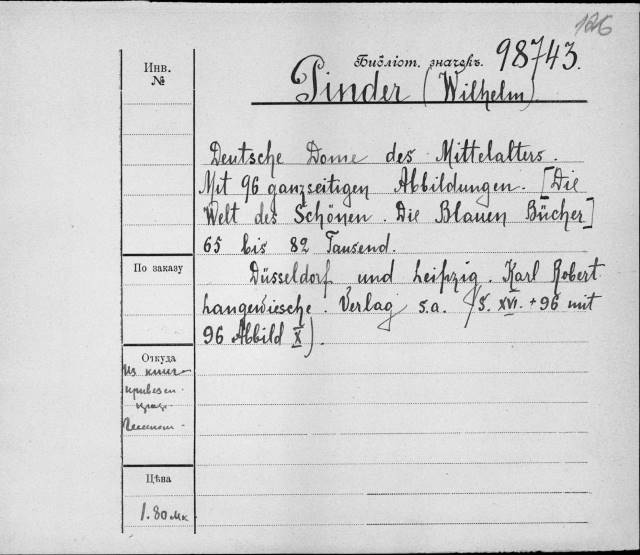 126
Библіот. значекъ. 98743.
Инв.
№
Pinder (Wilhelm).
Deutsche Dome des Mittelalters.
Mit 96 ganzseitigen Abbildungen. [Die
Welt des Schönen. Die Blauen Bücher]
65 bis 82 Tausend.
По заказу
Düsseldorf und Leipzig. Karl Robert
Langewiesche. Verlag s.a. (S. XVI. + 96 mit
96 Abbild X).
Откуда
Из книг
привезен.
Цѣна
1.80 мк